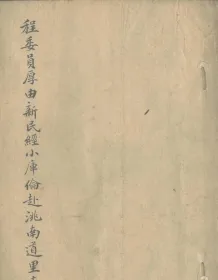 程委員厚由新民經小庫倫赴洮南道里